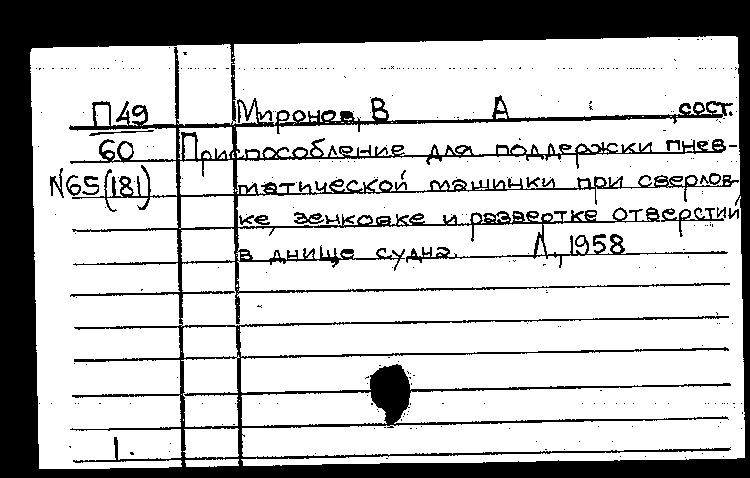 П49 Миронов, В А , сост.
60 Приспособление для поддержки пнев-
N65(181) матической машинки при сверлов-
ке, зенковке и развертке отверстий
в днище судна. Л., 1958
1.